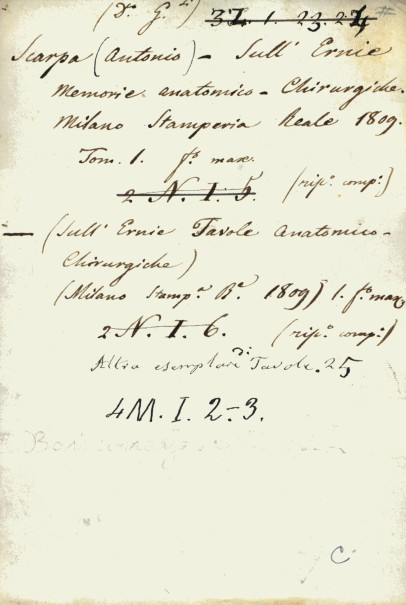 (Dr. G.li) 37. 1. 23. 24
Scarpa (Antonio) - Sull' Ernie
Memorie anatomico - Chirurgiche.
Milano Stamperia Reale 1809.
Tom. 1. fo. max.
2 N. I. 5. (rip.o comp.o)
— (Sull' Ernie Tavole Anatomico-
Chirurgiche)
(Milano Stamp.a R.a 1809) 1. fo. max.
2 N. I. 6. (rip.o comp.o)
Altro esemplare di Tavole. 25
4 M. I. 2-3.
C